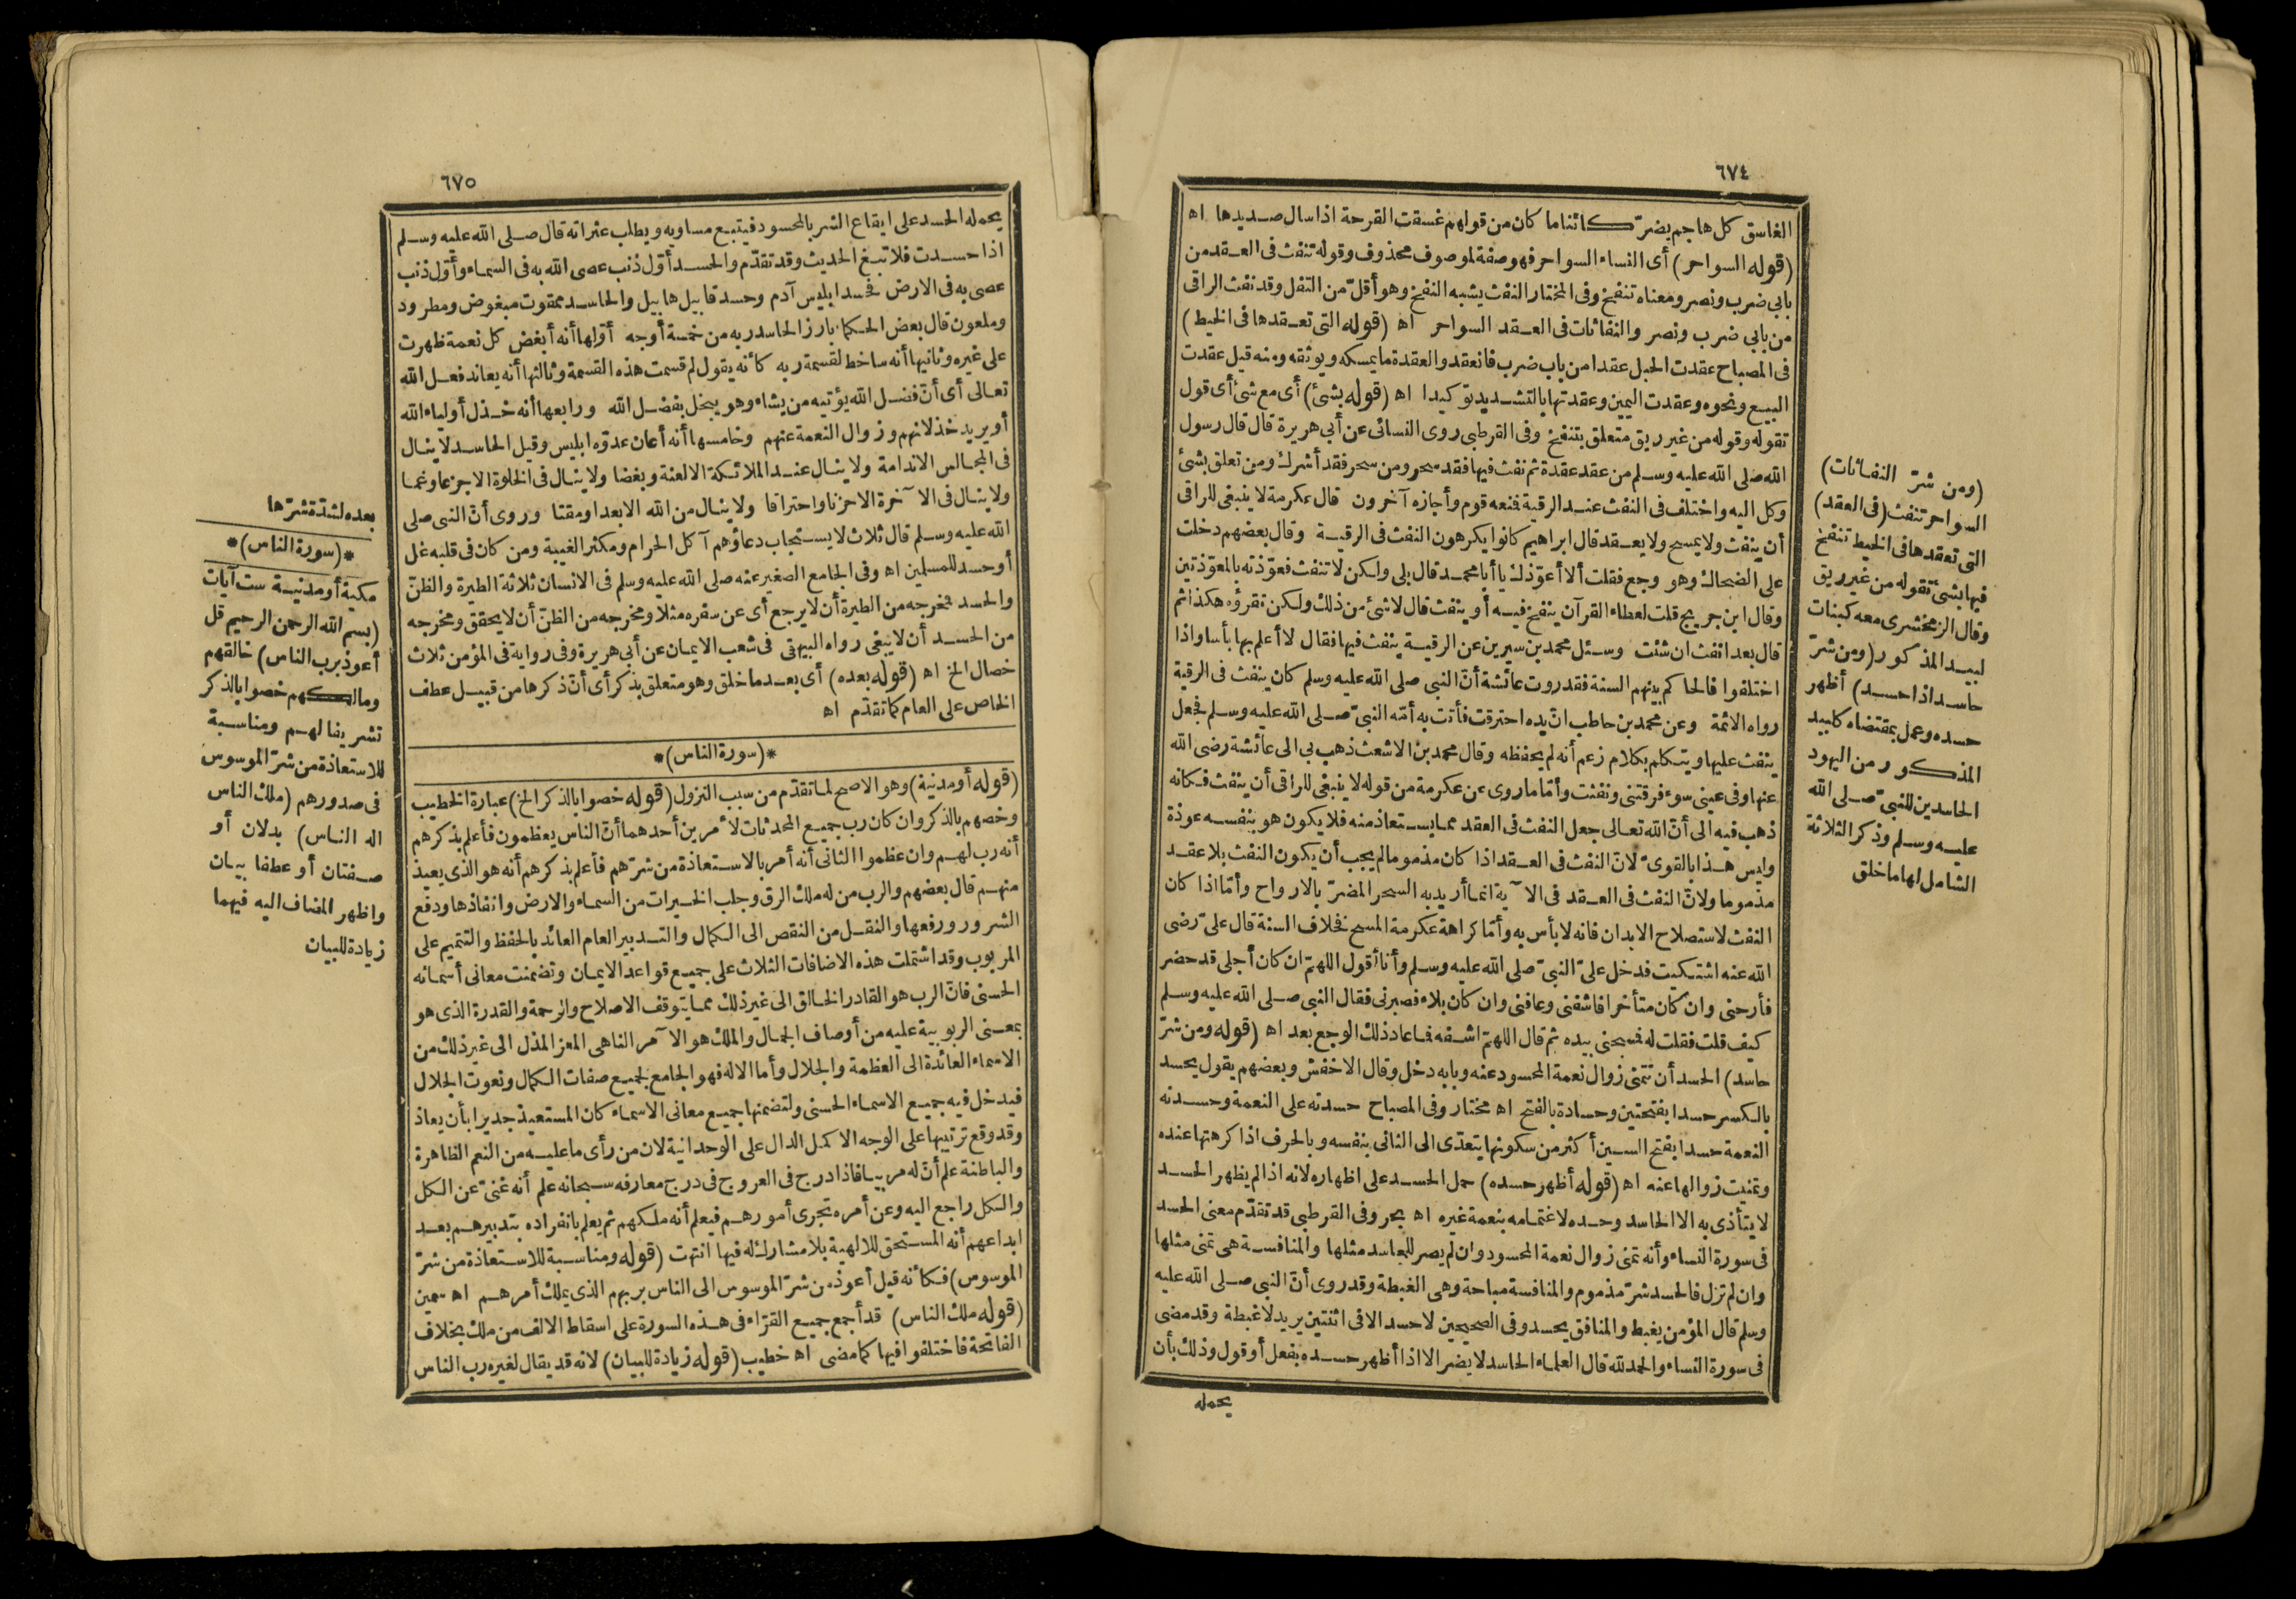 ٦٧٤
الغاسق كل هاجم يضرّ كائنا ما كان من قولهم غسقت القرحة اذا سال صديدها اه
(قوله السواحر) أى النساء السواحر فهو صفة لموصوف محذوف وقوله تنفث فى العقد من
بابى ضرب ونصر ومعناه تنفخ وفى المختار النفث يشبه النفخ وهو أقلّ من التفل وقد نفث الراقى
من بابى ضرب ونصر والنفاثات فى العقد السواحر اه (قوله التى تعقدها فى الخيط)
فى المصباح عقدت الحبل عقدا من باب ضرب فانعقد والعقدة ما يمسكه ويوثقه ومنه قيل عقدت
البيع ونحوه وعقدت اليمين وعقدتها بالتشديد توكيدا اه (قوله بشئ) أى مع شئ أى قول
تقوله وقوله من غير ريق متعلق بتنفخ وفى القرطبى روى النسائى عن أبى هريرة قال قال رسول
الله صلى الله عليه وسلم من عقد عقدة ثم نفث فيها فقد سحر ومن سحر فقد أشرك ومن تعلق بشئ
وكل اليه واختلف فى النفث عند الرقية فنعه قوم وأجازه آخرون قال عكرمة لا ينبغى للراقى
أن ينفث ولا يمسح ولا يعقد قال ابراهيم كانوا يكرهون النفث فى الرقية وقال بعضهم دخلت
على الضحاك وهو وجع فقلت ألا أعوّذك يا أبا محمد قال بلى ولكن لا تنفث فعوّذته بالمعوّذتين
وقال ابن جريج قلت لعطاء القرآن ينفخ فيه أو ينفث قال لا شئ من ذلك ولكن تقرؤه هكذا ثم
قال بعد انفث ان شئت وسئل محمد بن سيرين عن الرقية ينفث فيها فقال لا أعلم بها بأسا واذا
اختلفوا فالحاكم بينهم السنة فقد روت عائشة أنّ النبى صلى الله عليه وسلم كان ينفث فى الرقية
رواه الائمة وعن محمد بن حاطب انّ يده احترقت فأتت به أمّه النبىّ صلى الله عليه وسلم فجعل
ينفث عليها ويتكلم بكلام زعم أنه لم يحفظه وقال محمد بن الاشعث ذهب بى الى عائشة رضى الله
عنها وفى عينى سوء فرقتنى ونفثت وأمّا ما روى عن عكرمة من قوله لا ينبغى للراقى أن ينفث فكانه
ذهب فيه الى أنّ الله تعالى جعل النفث فى العقد مما يستعاذ منه فلا يكون هو بنفسه عوذة
وليس هذا بالقوىّ لانّ النفث فى العقد اذا كان مذموما لم يجب أن يكون النفث بلا عقد
مذموما ولانّ النفث فى العقد فى الآية انما أريد به السحر المضرّ بالارواح وأمّا اذا كان
النفث لاستصلاح الابدان فانه لا بأس به وأمّا كراهة عكرمة المسح فخلاف السنة قال علىّ رضى
الله عنه اشتكيت فدخل علىّ النبىّ صلى الله عليه وسلم وأنا أقول اللهمّ ان كان أجلى قد حضر
فأرحنى وان كان متأخرا فاشفنى وعافنى وان كان بلاء فصبرنى فقال النبى صلى الله عليه وسلم
كيف قلت فقلت له فسحنى بيده ثم قال اللهمّ اشفه فما عاد ذلك الوجع بعد اه (قوله ومن شرّ
حاسد) الحسد أن تتمنى زوال نعمة المحسود عنه وبابه دخل وقال الاخفش وبعضهم يقول يحسد
بالكسر حسدا بفتحتين وحسادة بالفتح اه مختار وفى المصباح حسدته على النعمة وحسدته
النعمة حسدا بفتح السين أكثر من سكونها يتعدّى الى الثانى بنفسه وبالحرف اذا كرهتها عنده
وتمنيت زوالها عنه اه (قوله أظهر حسده) حمل الحسد على اظهاره لانه اذا لم يظهر الحسد
لا يتأذى به الا الحاسد وحده لاغتمامه بنعمة غيره اه بحر وفى القرطبى قد تقدّم معنى الحسد
فى سورة النساء وأنه تمنى زوال نعمة المحسود وان لم يصر للحاسد مثلها والمنافسة هى تمنى مثلها
وان لم تزل فالحسد شرّ مذموم والمنافسة مباحة وهى الغبطة وقد روى أنّ النبى صلى الله عليه
وسلم قال المؤمن يغبط والمنافق يحسد وفى الصحيحين لا حسد الا فى اثنتين يريد لا غبطة وقد مضى
فى سورة النساء والحمد لله قال العلماء الحاسد لا يضر الا اذا أظهر حسده بفعل أو قول وذلك بأن
يحمله
(ومن شرّ النفاثات)
السواحر تنفث (فى العقد)
التى تعقدها فى الخيط تنفخ
فيها بشئ تقوله من غير ريق
وقال الزمخشرى معه كبنات
لبيد المذكور (ومن شرّ
حاسد اذا حسد) أظهر
حسده وعمل بمقتضاه كلبيد
المذكور من اليهود
الحاسدين للنبىّ صلى الله
عليه وسلم وذكر الثلاثة
الشامل لها ما خلق
٦٧٥
يحمله الحسد على ايقاع الشر بالمحسود فيتبع مساويه ويطلب عثراته قال صلى الله عليه وسلم
اذا حسدت فلا تبغ الحديث وقد تقدّم والحسد أوّل ذنب عصى الله به فى السماء وأوّل ذنب
عصى به فى الارض فحسد ابليس آدم وحسد قابيل هابيل والحاسد ممقوت مبغوض ومطرود
وملعون قال بعض الحكماء بارز الحاسد ربه من خمسة أوجه أوّلها أنه أبغض كل نعمة ظهرت
على غيره وثانيها أنه ساخط لقسمة ربه كأنه يقول لم قسمت هذه القسمة وثالثها أنه يعاند فعل الله
تعالى أى أنّ فضل الله يؤتيه من يشاء وهو يبخل بفضل الله ورابعها أنه خذل أولياء الله
أو يريد خذلانهم وزوال النعمة عنهم وخامسها أنه أعان عدوّه ابليس وقيل الحاسد لا ينال
فى المجالس الا ندامة ولا ينال عند الملائكة الا لعنة وبغضا ولا ينال فى الخلوة الا جزعا وغما
ولا ينال فى الآخرة الا حزنا واحتراقا ولا ينال من الله الا بعدا ومقتا وروى أنّ النبى صلى
الله عليه وسلم قال ثلاث لا يستجاب دعاؤهم آكل الحرام ومكثر الغيبة ومن كان فى قلبه غل
أو حسد للمسلمين اه وفى الجامع الصغير عنه صلى الله عليه وسلم فى الانسان ثلاثة الطيرة والظنّ
والحسد فمخرجه من الطيرة أن لا يرجع أى عن سفره مثلا ومخرجه من الظنّ أن لا يحقق ومخرجه
من الحسد أن لا يبغى رواه البيهقى فى شعب الايمان عن أبى هريرة وفى رواية فى المؤمن ثلاث
خصال الخ اه (قوله بعده) أى بعد ما خلق وهو متعلق بذكر أى أنّ ذكرها من قبيل عطف
الخاص على العام كما تقدّم اه
*(سورة الناس)*
(قوله أو مدنية) وهو الاصح لما تقدّم من سبب النزول (قوله خصوا بالذكر الخ) عبارة الخطيب
وخصهم بالذكر وان كان رب جميع المحدثات لأمرين أحدهما أنّ الناس يعظمون فأعلم بذكرهم
أنه رب لهم وان عظموا الثانى أنه أمر بالاستعاذة من شرّهم فأعلم بذكرهم أنه هو الذى يعيذ
منهم قال بعضهم والرب من له ملك الرق وجلب الخيرات من السماء والارض وانفاذها ودفع
الشرور ورفعها والنقل من النقص الى الكمال والتدبير العام العائد بالحفظ والتتميم على
المربوب وقد اشتملت هذه الاضافات الثلاث على جميع قواعد الايمان وتضمنت معانى أسمائه
الحسنى فانّ الرب هو القادر الخالق الى غير ذلك مما يتوقف الاصلاح والرحمة والقدرة الذى هو
بمعنى الربوبية عليه من أوصاف الجمال والملك هو الآمر الناهى المعز المذل الى غير ذلك من
الاسماء العائدة الى العظمة والجلال وأما الاله فهو الجامع لجميع صفات الكمال ونعوت الجلال
فيدخل فيه جميع الاسماء الحسنى ولتضمنها جميع معانى الاسماء كان المستعيذ جديرا بأن يعاذ
وقد وقع ترتيبها على الوجه الاكمل الدال على الوحدانية لان من رأى ما عليه من النعم الظاهرة
والباطنة علم أنّ له مربيا فاذا درج فى العروج فى درج معارفه سبحانه علم أنه غنىّ عن الكل
والكل راجع اليه وعن أمره تجرى أمورهم فيعلم أنه ملكهم ثم يعلم بانفراده بتدبيرهم بعد
ابداعهم أنه المستحق للالهية بلا مشارك له فيها انتهت (قوله ومناسبة للاستعاذة من شرّ
الموسوس) فكأنه قيل أعوذ من شرّ الموسوس الى الناس بربهم الذى يملك أمرهم اه سمين
(قوله ملك الناس) قد أجمع جميع القرّاء فى هذه السورة على اسقاط الالف من ملك بخلاف
الفاتحة فاختلفوا فيها كما مضى اه خطيب (قوله زيادة للبيان) لانه قد يقال لغيره رب الناس
بعده لشدّة شرّها
*(سورة الناس)*
مكية أو مدنية ست آيات
(بسم الله الرحمن الرحيم قل
أعوذ برب الناس) خالقهم
ومالكهم خصوا بالذكر
تشريفا لهم ومناسبة
للاستعاذة من شرّ الموسوس
فى صدورهم (ملك الناس
اله الناس) بدلان أو
صفتان أو عطفا بيان
واظهر المضاف اليه فيهما
زيادة للبيان